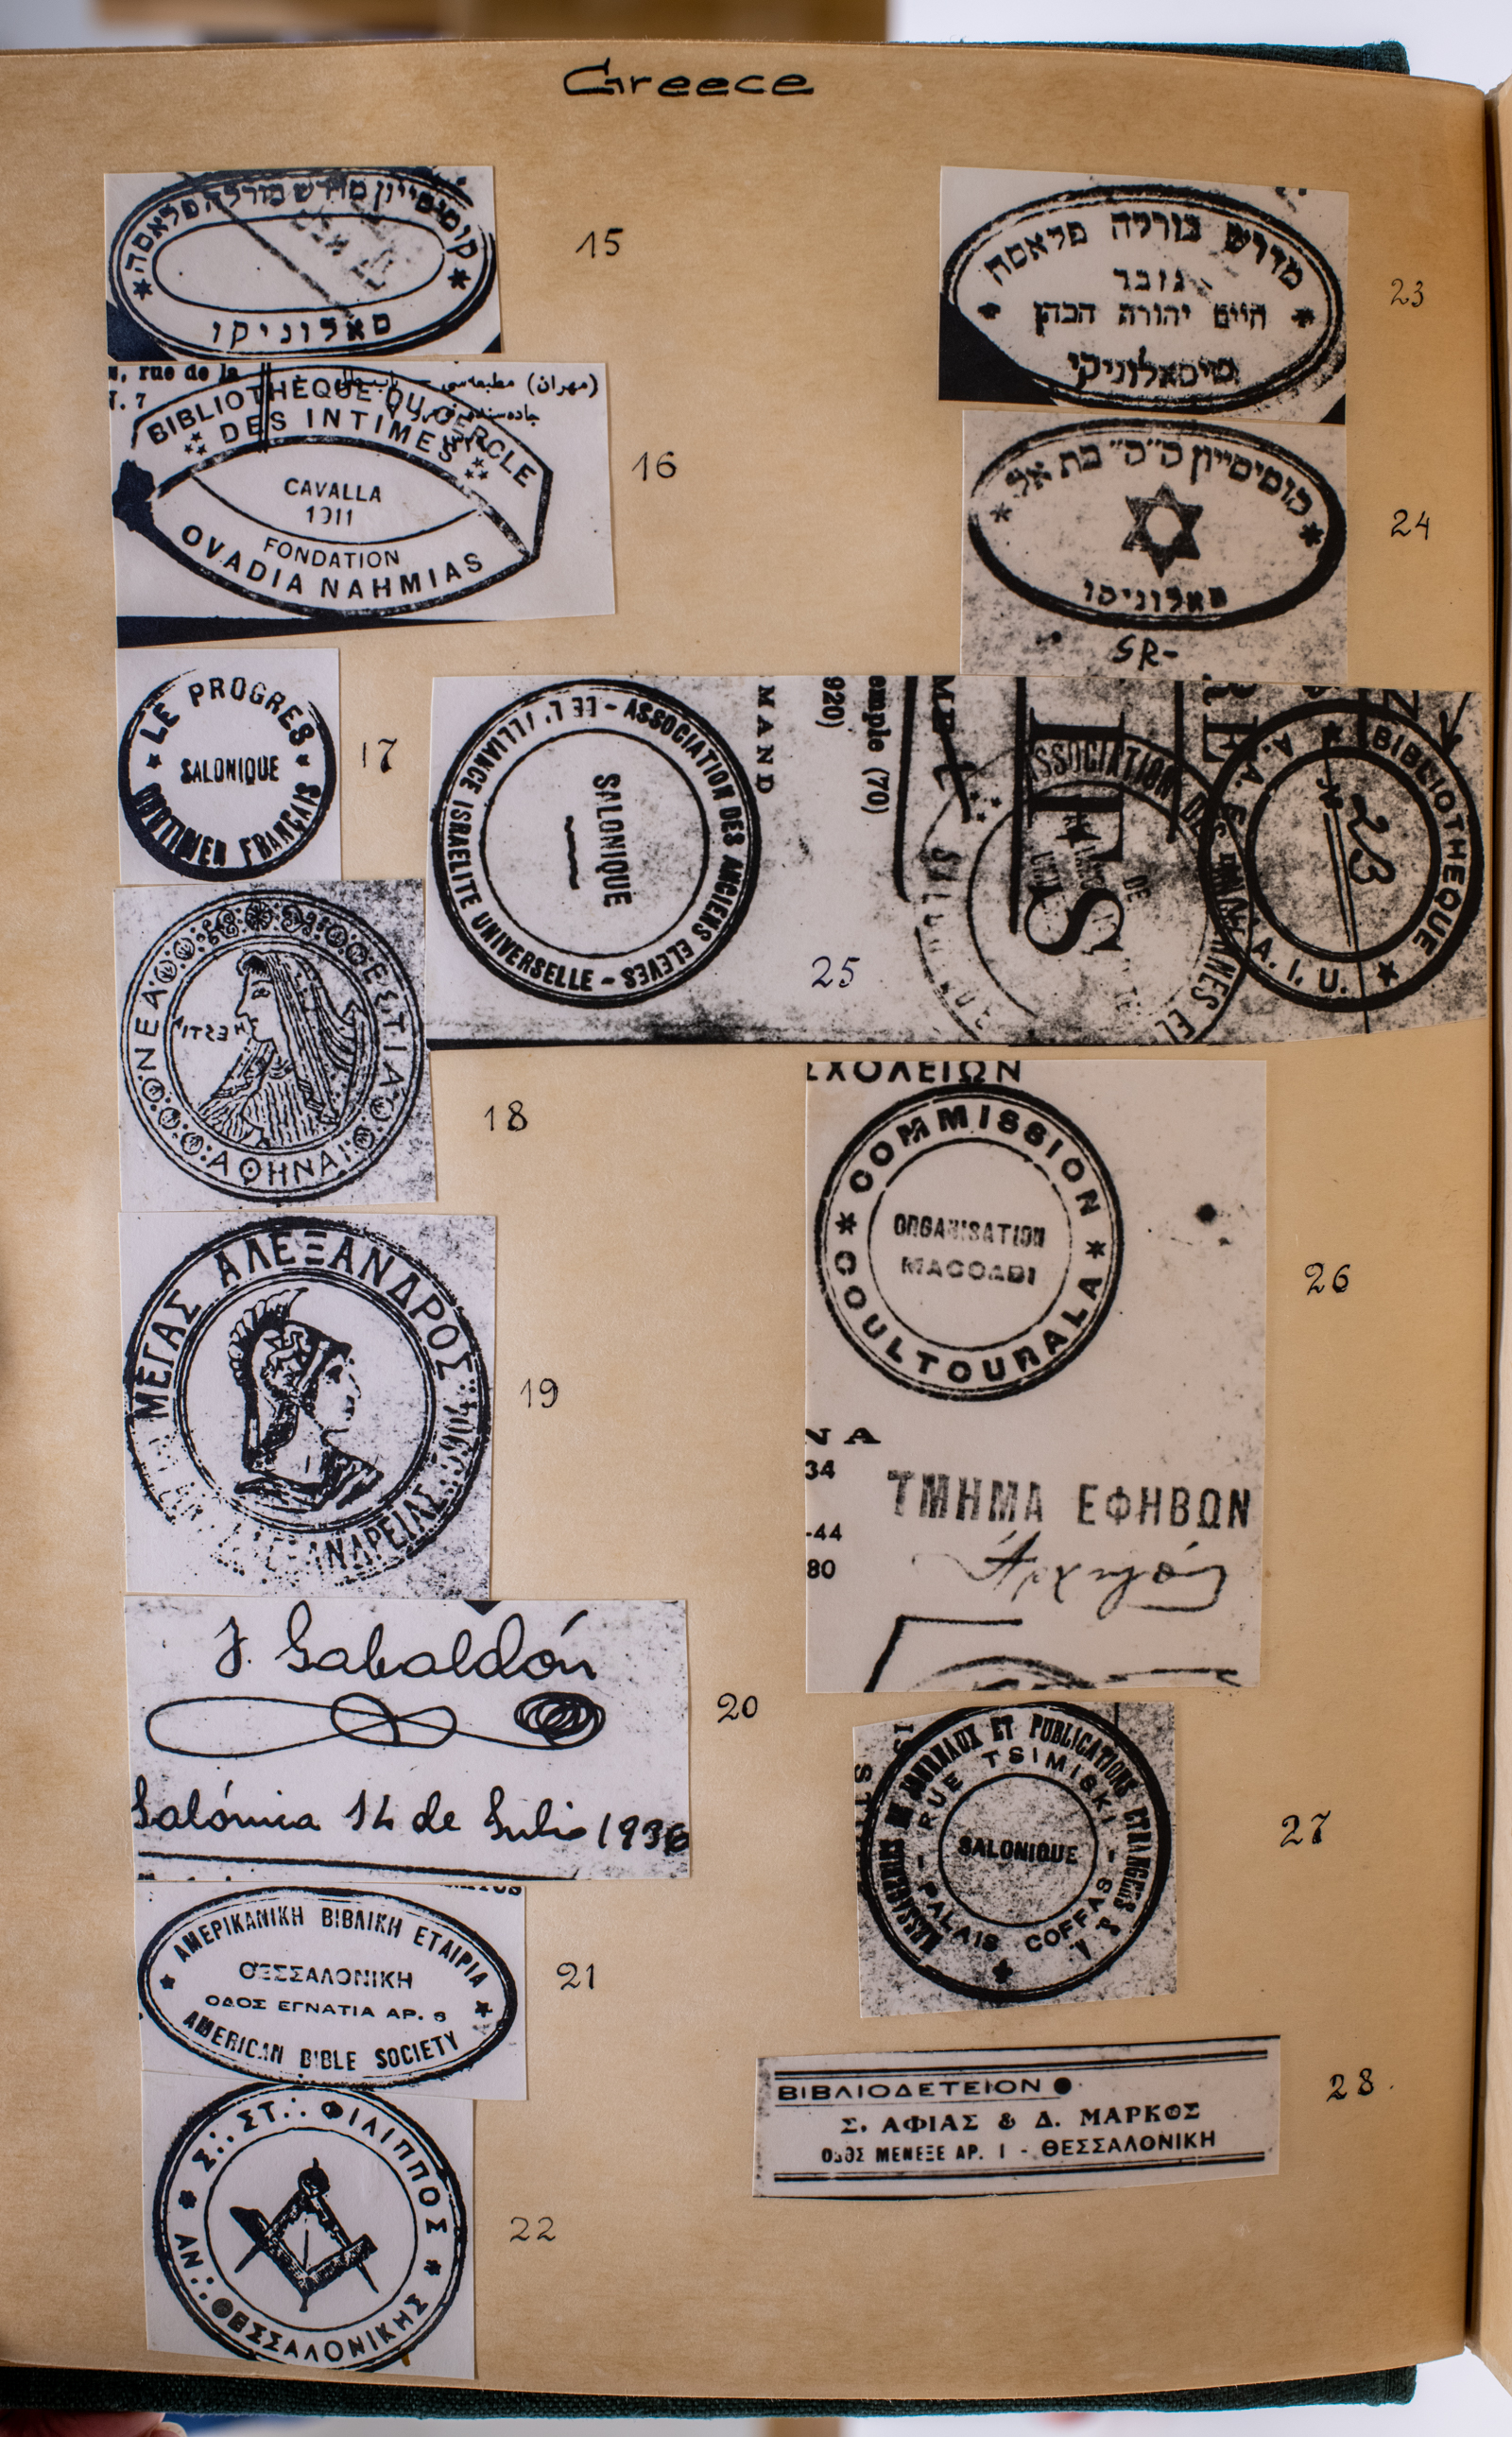 Greece
קומיסייון מדרש בורלה פלאסה
סאלוניקו
15
, rue de la
. 7
(مهران) مطبعه‌سی
BIBLIOTHÈQUE DU CERCLE
DES INTIMES
CAVALLA
1911
FONDATION
OVADIA NAHMIAS
16
LE PROGRES
SALONIQUE
QUOTIDIEN FRANÇAIS
17
ΝΕΑ ΕΣΤΙΑ
ΑΘΗΝΑΙ
18
ΜΕΓΑΣ ΑΛΕΞΑΝΔΡΟΣ
19
J. Gabaldón
Salónica 14 de Julio 1936
20
ΑΜΕΡΙΚΑΝΙΚΗ ΒΙΒΛΙΚΗ ΕΤΑΙΡΙΑ
ΘΕΣΣΑΛΟΝΙΚΗ
ΟΔΟΣ ΕΓΝΑΤΙΑ ΑΡ. 6
AMERICAN BIBLE SOCIETY
21
Σ∴ ΣΤ∴ ΦΙΛΙΠΠΟΣ
ΑΝ∴ ΘΕΣΣΑΛΟΝΙΚΗΣ
22
מדרש בורלה פלאסה
גזבר
חיים יהודה הכהן
סיסאלוניקי
23
קומיסייון ק״ק בת אל
סאלוניקו
SR-
24
ASSOCIATION DES ANCIENS ELEVES - DE L'ALLIANCE ISRAELITE UNIVERSELLE -
SALONIQUE
MAND
920)
emple (70)
ASSOCIATION DES
SALONIQUE
BIBLIOTHEQUE
A. A. E. A. I. U.
No 23
25
ΣΧΟΛΕΙΩΝ
COMMISSION
ORGANISATION
MACCABI
COULTOURALA
ΝΑ
34
-44
80
ΤΜΗΜΑ ΕΦΗΒΩΝ
Ἀρχηγός
26
MESSAGERIES DE JOURNAUX ET PUBLICATIONS ETRANGERES S. A.
RUE TSIMISKI - PALAIS COFFAS -
SALONIQUE
27
ΒΙΒΛΙΟΔΕΤΕΙΟΝ
Σ. ΑΦΙΑΣ & Δ. ΜΑΡΚΟΣ
ΟΔΟΣ ΜΕΝΕΞΕ ΑΡ. 1 - ΘΕΣΣΑΛΟΝΙΚΗ
28.